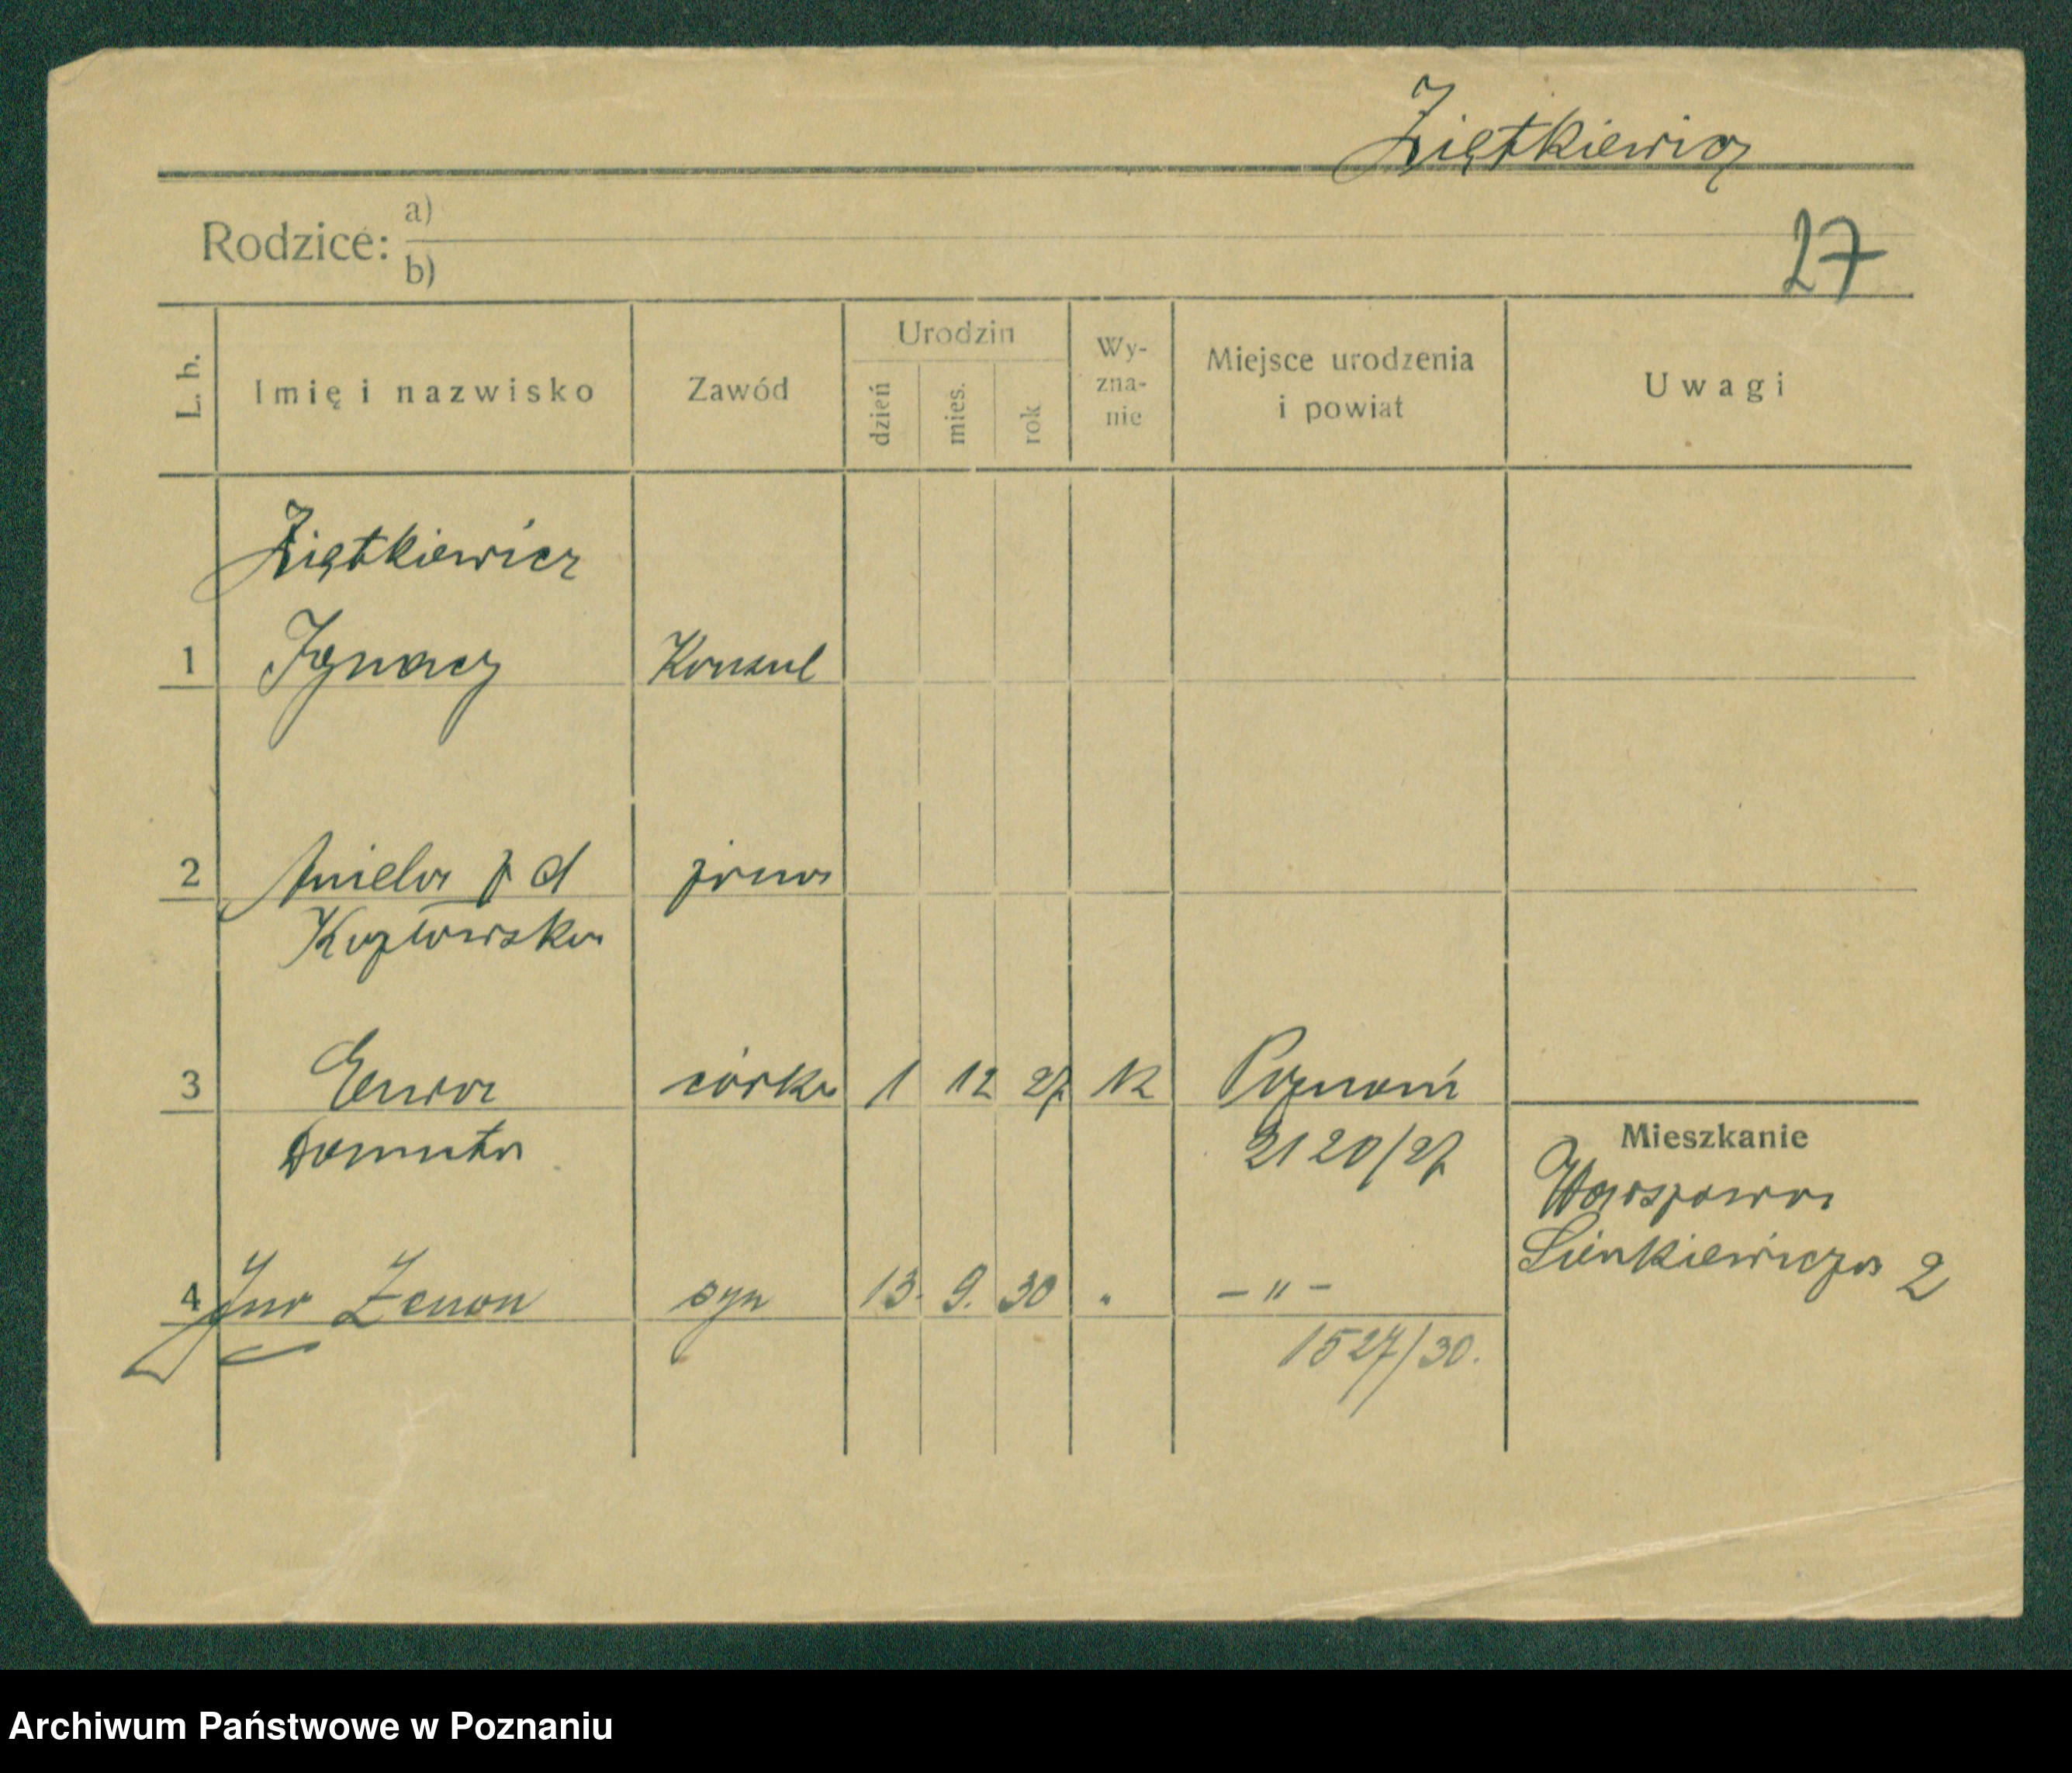 Ziętkiewicz
Rodzice: a)
b)
27
L. b. Imię i nazwisko Zawód Urodzin dzień mies. rok Wy-zna-nie Miejsce urodzenia i powiat Uwagi
Ziętkiewicz
1 Ignacy Konsul
2 Aniela z d żona
Kozłowska
3 Ewa córka 1 12 27 rk Poznań
Danuta 2120/27
Mieszkanie
Warszawa
Sienkiewicza 2
4 Zenon syn 13. 9. 30 " — " —
1527/30.
Archiwum Państwowe w Poznaniu